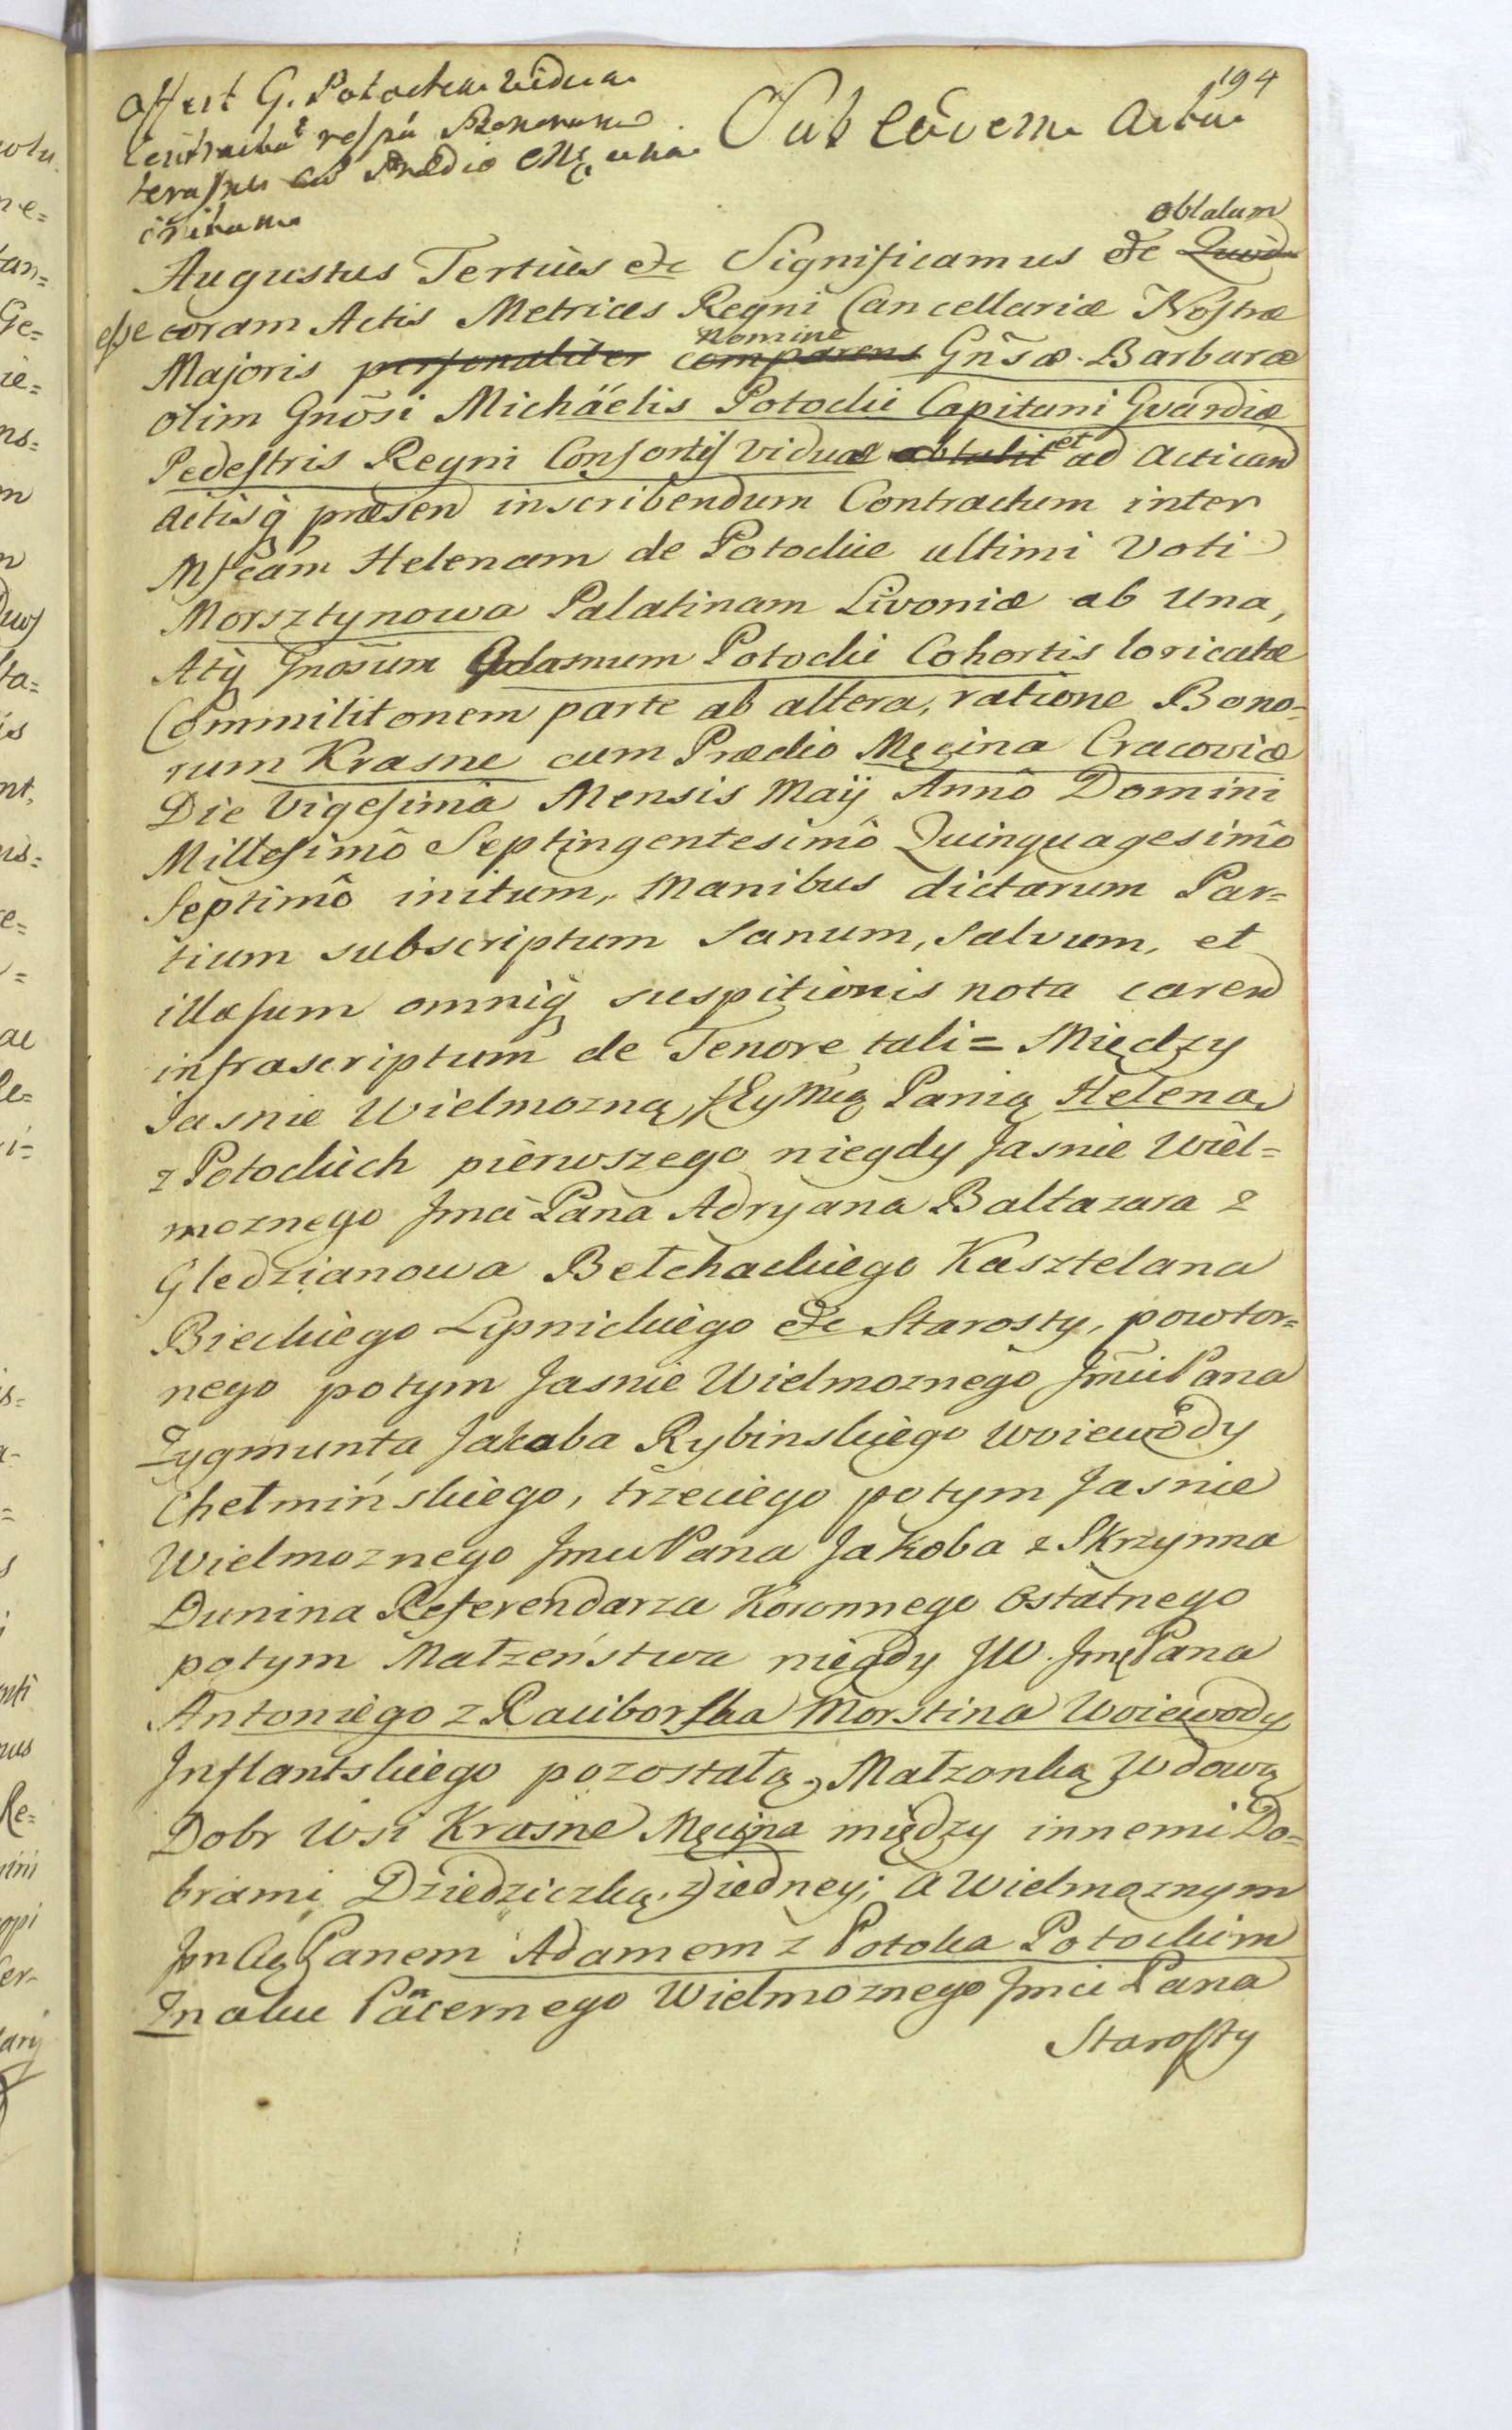 194
Offert G. Potocka Vidua
Contractũ respũ Bonorum
Krasne cũ Prædio Męcina
initum
Sub eâdem Actu
oblatum
Augustus Tertius &c Significamus &c Quod
esse coram Actis Metrices Regni Cancellariæ Nostræ
Nomine
Majoris personaliter comparens Gñsæ Barbaræ
olim Gnõsi Michäelis Potocki Capitani Gvardiæ
Pedestris Regni Consortis Viduæ obtulit et ad Acticand
Actisq̃ præsen inscribendum Contractum inter
Mfcam Helenam de Potockie ultimi Voti
Morsztynowa Palatinam Livoniæ ab Una,
Atq̃ Gnosum Adamum Potocki Cohortis loricatæ
Commilitonem parte ab altera, ratione Bono=
rum Krasne cum Prædio Męcina Cracoviæ
Die Vigesima Mensis Maÿ Annô Domini
Millesimô Septingentesimô Quinquagesimô
Septimô initum, Manibus dictarum Par=
tium subscriptum sanum, salvum, et
illæsum omniq̃ suspitionis nota caren
infrascriptum de Tenore tali = Między
Jasnie Wielmozną JEyMcią Panią Heleną
z Potockich pierwszego niegdy Jasnie Wiel=
moznego Jmci Pana Adryana Baltazara z
Gledzianowa Bełchackiego Kasztelana
Bieckiego Lipnickiego &c Starosty, powtor=
nego potym Jasnie Wielmoznego Jmci Pana
Zygmunta Jakoba Rybinskiego Woiewody
Chełmińskiego, trzeciego potym Jasnie
Wielmoznego Jmci Pana Jakoba z Skrzynna
Dunina Referendarza Koronnego Ostatnego
potym Małżeństwa niegdy JW. Jmci Pana
Antoniego z Raciborska Morstina Woiewody
Inflantskiego pozostałą, Małzonką Wdową
Dobr Wsi Krasne Męcina między innemi Do=
brami Dziedziczką, z iedney; a Wielmoznym
Jmcią Panem Adamem z Potoka Potockim
Znaku Pancernego Wielmoznego Jmci Pana
Starosty